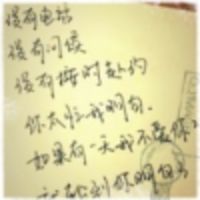 没有电话
没有问候
没有按时赴约
你太忙,我明白.
如果有一天我不爱你了
轮到你明白了